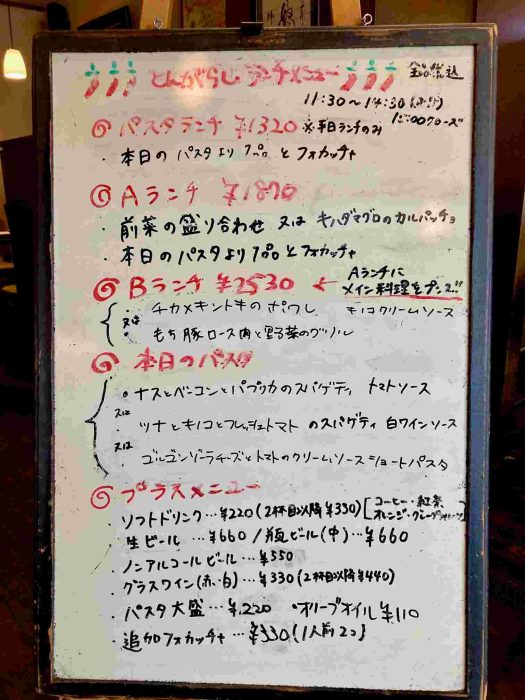 とんがらし ランチメニュー 全品税込
11:30〜14:30
15:00クローズ
パスタランチ ¥1320 ※平日ランチのみ
・本日のパスタより1品とフォカッチャ
Aランチ ¥1870
・前菜の盛り合わせ 又は キハダマグロのカルパッチョ
・本日のパスタより1品とフォカッチャ
Bランチ ¥2530 ← Aランチに
メイン料理をプラス!!
・チカメキントキのポワレ キノコクリームソース
又は
・もち豚ロース肉と野菜のグリル
本日のパスタ
・ナスとベーコンとパプリカのスパゲティ トマトソース
又は
・ツナとキノコとフレッシュトマトのスパゲティ 白ワインソース
又は
・ゴルゴンゾーラチーズとトマトのクリームソース ショートパスタ
プラスメニュー
・ソフトドリンク…¥220(2杯目以降¥330)[コーヒー・紅茶
オレンジ・グレープ
・生ビール…¥660/瓶ビール(中)…¥660
・ノンアルコールビール…¥550
・グラスワイン(赤・白)…¥330(2杯目以降¥440)
・パスタ大盛…¥220 ・オリーブオイル¥110
・追加フォカッチャ…¥330(1人前2コ)